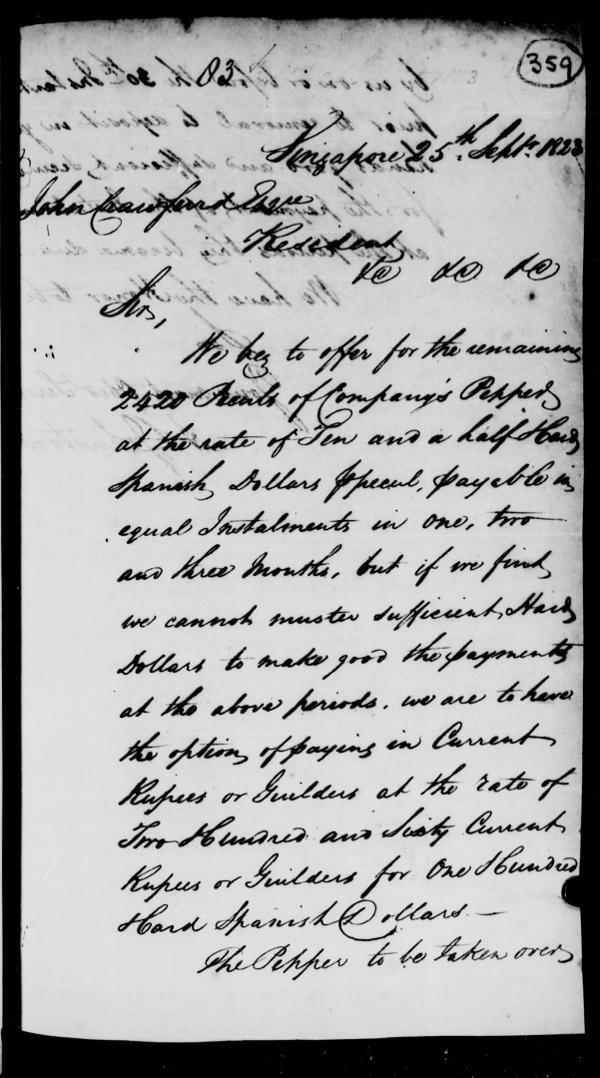 359
83
Singapore 25th Septr. 1823
John Crawfurd Esqre
Resident
&c &c &c
Sir,
We beg to offer for the remaining
2420 Peculs of Company's Pepper
at the rate of Ten and a half Hard
Spanish Dollars ⅌ pecul, payable in
equal Instalments in one, two
and three Months, but if we find
we cannot muster sufficient Hard
Dollars to make good the payments
at the above periods, we are to have
the option of paying in Current
Rupees or Guilders at the rate of
Two Hundred and Sixty Current
Rupees or Guilders for One Hundred
Hard Spanish Dollars —
The Pepper to be taken over